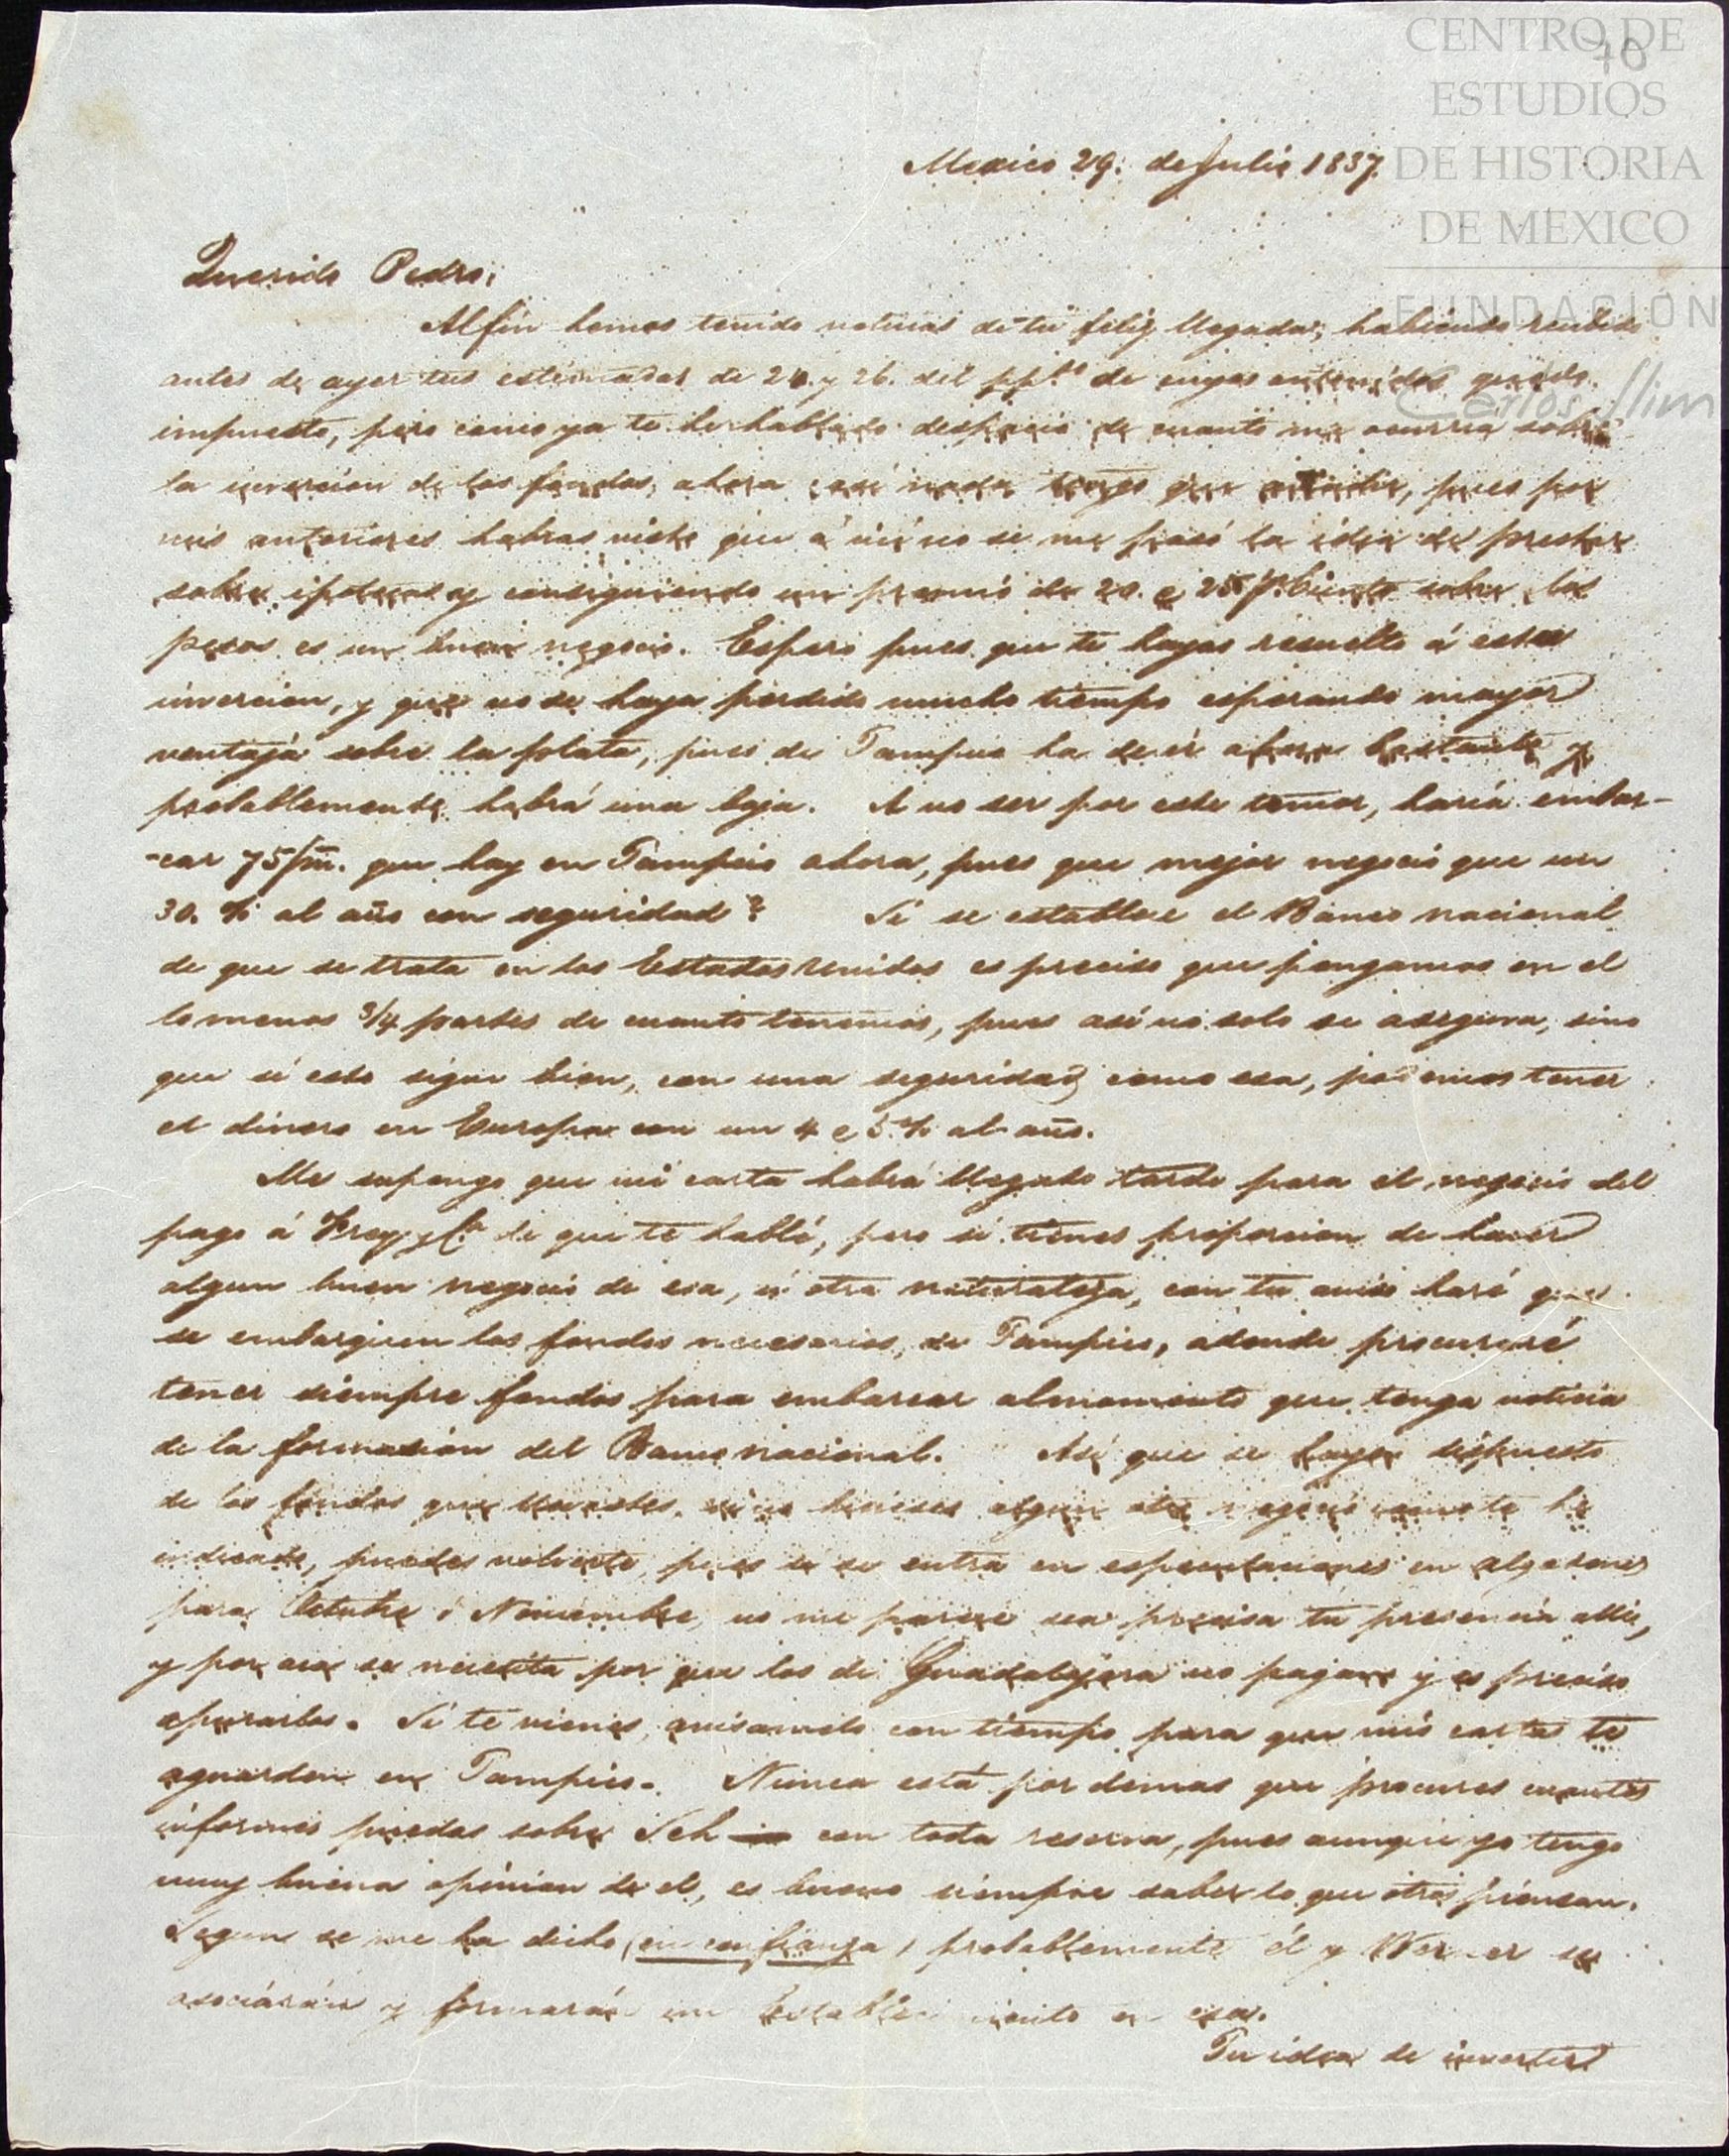 CENTRO DE
ESTUDIOS
DE HISTORIA
DE MEXICO
FUNDACIÓN
Carlos Slim
70
Mexico 29. de Julio 1837.
Querido Pedro;
Al fin hemos tenido noticias de tu feliz llegada; habiendo recibido
antes de ayer tus estimadas de 24. y 26. del pp.do de cuyos contenidos quedo
impuesto, pero como ya te he hablado despacio de cuanto me ocurria sobre
la invercion de los fondos, ahora casi nada tengo que añadir, pues por
mis anteriores habras visto que á mi no se me pasó la idea de prestar
sobre ipotecas y consiguiendo un premio de 20. o 25 p.r Ciento sobre los
pesos es un buen negocio. Espero pues que te hayas resuelto á esta
invercion, y que no se haya perdido mucho tiempo esperando mayor
ventaja sobre la plata, pues de Tampico ha de ir ahora bastante y
probablemente habrá una baja. A no ser por este temor, haria embar-
-car 75/m. que hay en Tampico ahora, pues que mejor negocio que un
30. % al año con seguridad? Si se establece el Banco nacional
de que se trata en los Estados Unidos es preciso que pongamos en el
lo menos 3/4 partes de cuanto tenemos, pues asi no solo se asegura, sino
que si esto sigue bien, con una seguridad como esa, podemos tener
el dinero en Europa con un 4 o 5 % al año.
Me supongo que mi carta habrá llegado tarde para el negocio del
pago á y C.a de que te hablé, pero si tienes proporcion de hacer
algun buen negocio de esa, ú otra naturaleza, con tu aviso haré que
se embarquen los fondos necesarios, de Tampico, adonde procuraré
tener siempre fondos para embarcar al momento que tenga noticia
de la formasion del Banco nacional. Asi que se haya dispuesto
de los fondos que llevastes, si no hicieses algun otro negocio como te he
indicado, puedes volverte, pues si se entra en especulaciones en algodones
para Octubre ó Noviembre, no me parece sea precisa tu presencia alli,
y por aca se necesita por que los de Guadalajara no pagan y es preciso
apurarlos. Si te vienes, avisamelo con tiempo para que mis cartas te
aguarden en Tampico. Nunca está por demas que procures cuantos
informes puedas sobre Sch con toda reserva, pues aunque yo tengo
muy buena opinion de el, es bueno siempre saber lo que otros piensan.
Segun se me ha dicho (en confianza) probablemente él y Werner se
asociarán y formarán un Establecimiento en esa.
Tu idea de invertir